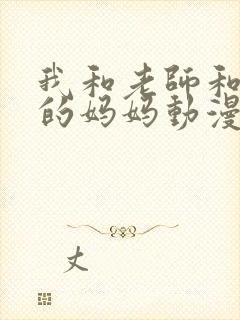 我和老師和
的妈妈動漫
丈